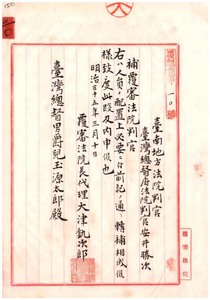 臺南地方法院判官
臺灣總督府法院判官安井勝次
補覆審法院判官
右ハ人員ノ配置上必要ニ付前記ノ通リ轉補相成候
樣致度此段及内申候也
明治三十五年三月十日
覆審法院長代理大津釚次郎
臺灣總督男爵兒玉源太郎殿
覆審法院